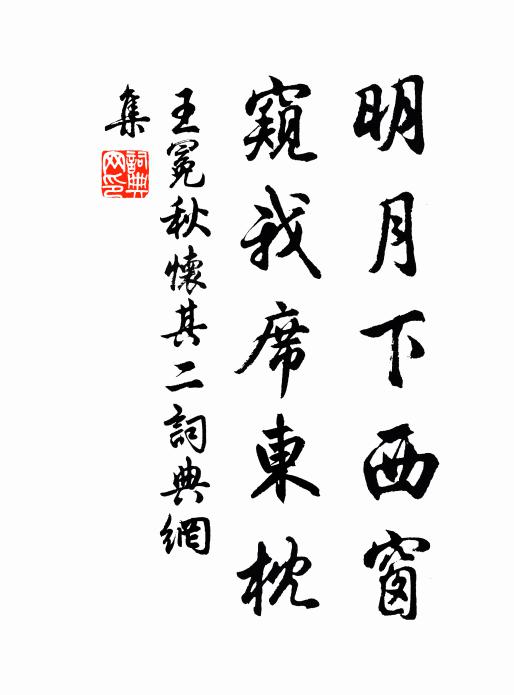 明月下西窗
窺我席東枕
王冕秋懷其二詞典網
集
詞典
网印